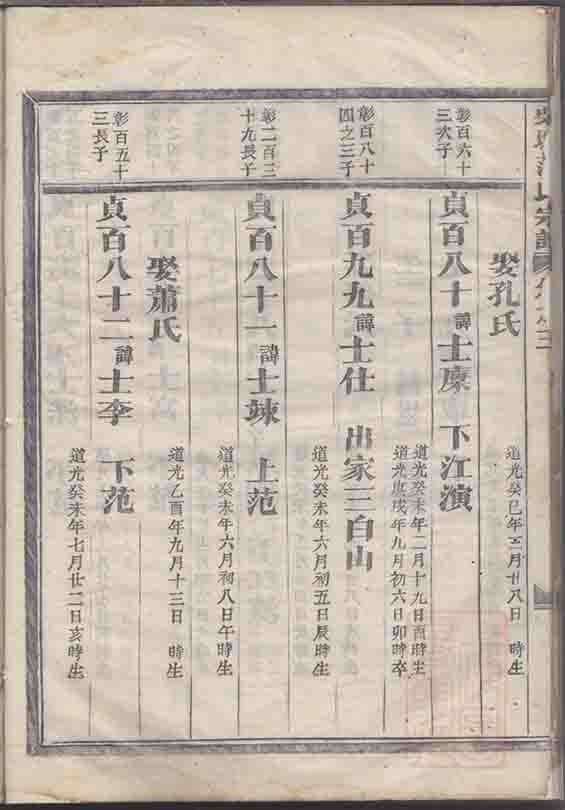 娶孔氏
道光癸巳年二月廿八日 時生
彰百六十
三次子
貞百八十諱士 下江演
道光癸未年二月十九日酉時生
道光庚戌年九月初六日卯時卒
彰百八十
四之三子
貞百九九諱士仕 出家三白山
道光癸未年六月初五日辰時生
彰二百三
十九長子
貞百八十一諱士竦 上范
道光癸未年六月初八日午時生
娶蕭氏
道光乙酉年九月十三日 時生
彰百五十
三長子
貞百八十二諱士李 下范
道光癸未年七月廿二日亥時生